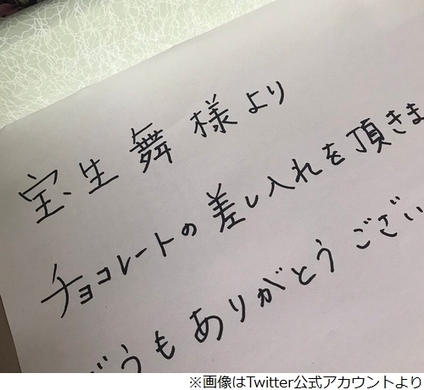 宝生舞様より
チョコレートの差し入れを頂きま
どうもありがとうござい
※画像はTwitter公式アカウントより